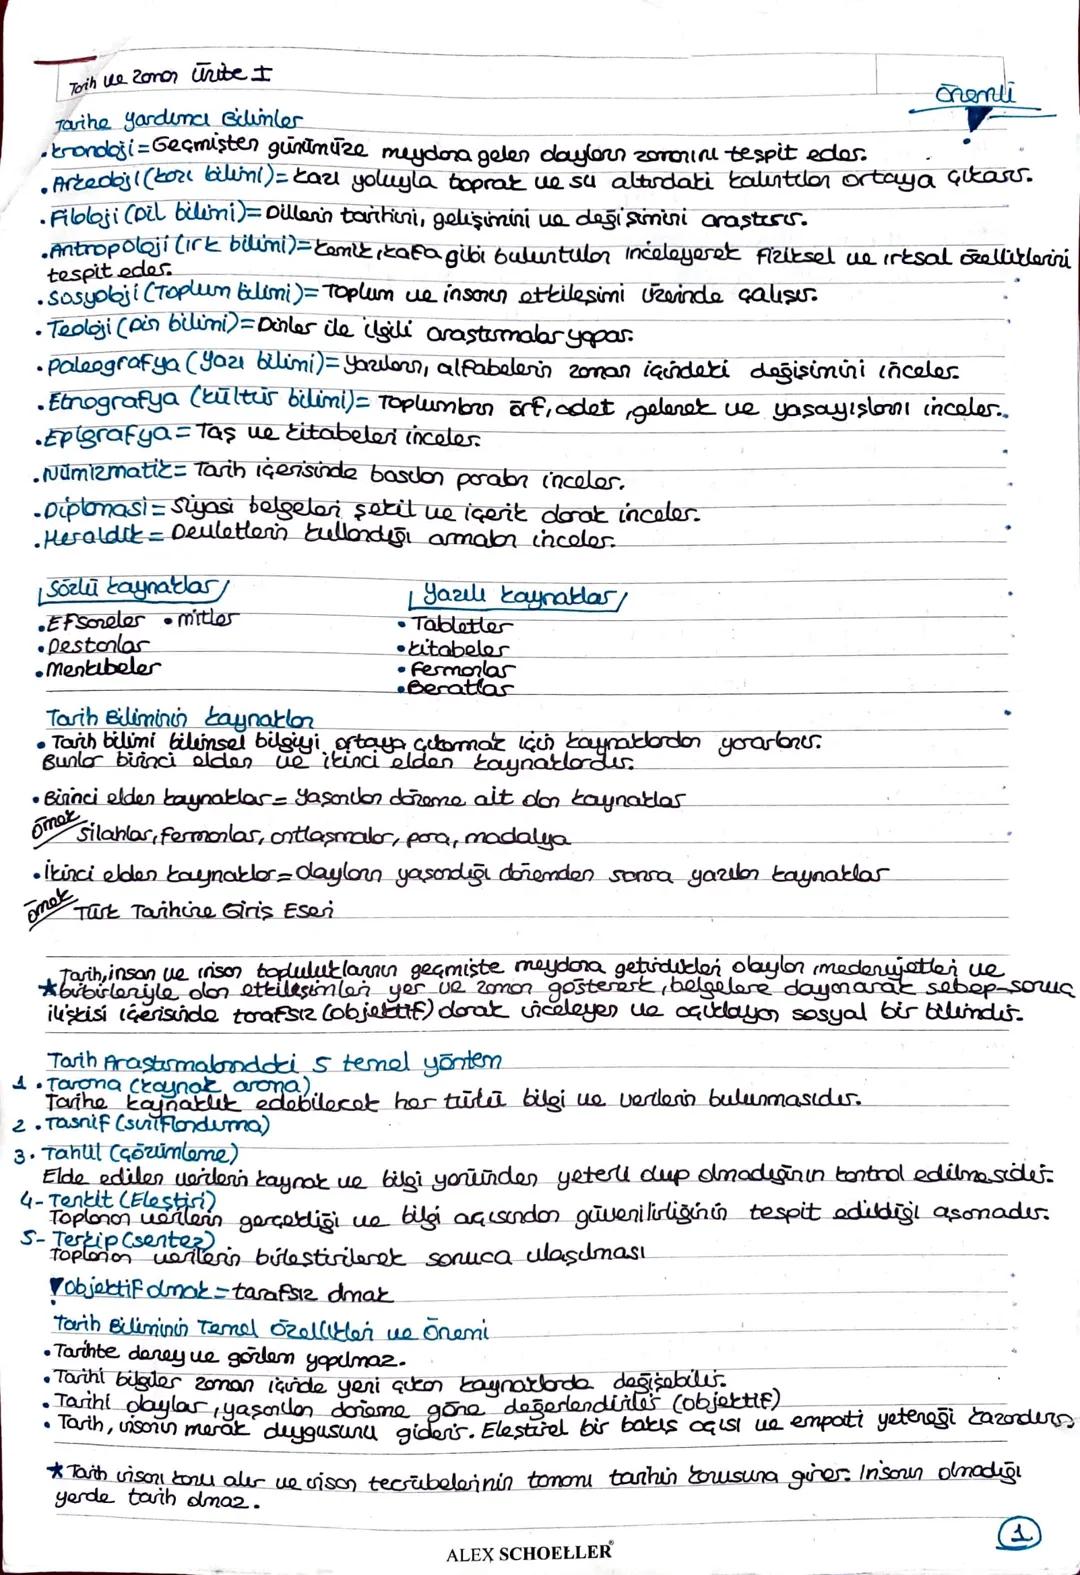 Tarih ve zaman Ünite I
Önemli
Tarihe Yardımcı Bilimler
. kronoloji = Geçmişten günümüze meydana gelen olayların zamanını tespit eder.
. Arkeoloji (kazı bilimi) = kazı yoluyla toprak ve su altındaki kalıntıları ortaya çıkarır.
. Filoloji (Dil bilimi) = Dillerin tarihini, gelişimini ve değişimini araştırır.
. Antropoloji (ırk bilimi) = kemik, kafa gibi buluntuları inceleyerek fiziksel ve ırksal özelliklerini
tespit eder.
. Sosyoloji (Toplum bilimi) = Toplum ve insanın etkileşimi üzerinde çalışır.
. Teoloji (Din bilimi) = Dinler ile ilgili araştırmalar yapar.
. Paleografya (Yazı bilimi) = Yazıların, alfabelerin zaman içindeki değişimini inceler.
. Etnografya (kültür bilimi) = Toplumların örf, adet, gelenek ve yaşayışlarını inceler.
. Epigrafya = Taş ve kitabeleri inceler.
. Nümizmatik = Tarih içerisinde basılan paraları inceler.
. Diplomasi = Siyasi belgeleri şekil ve içerik olarak inceler.
. Heraldik = Devletlerin kullandığı armaları inceler.
Sözlü kaynaklar Yazılı kaynaklar
. Efsaneler • mitler
• Tabletler
• Destanlar
• kitabeler
• Menkıbeler
• fermanlar
• Beratlar
Tarih Biliminin kaynakları
• Tarih bilimi bilimsel bilgiyi ortaya çıkarmak için kaynaklardan yararlanır.
Bunlar birinci elden ve ikinci elden kaynaklardır.
• Birinci elden kaynaklar = Yaşanılan döneme ait olan kaynaklar
örnek Silahlar, fermanlar, antlaşmalar, para, madalya
• İkinci elden kaynaklar = olayların yaşandığı dönemden sonra yazılan kaynaklar
örnek Türk Tarihine Giriş Eseri
Tarih, insan ve insan topluluklarının geçmişte meydana getirdikleri olayları, medeniyetleri ve
★ birbirleriyle olan etkileşimleri yer ve zaman göstererek, belgelere dayanarak sebep-sonuç
ilişkisi içerisinde tarafsız (objektif) olarak inceleyen ve açıklayan sosyal bir bilimdir.
Tarih Araştırmalarındaki 5 temel yöntem
1. Tarama (kaynak arama)
Tarihe kaynaklık edebilecek her türlü bilgi ve verilerin bulunmasıdır.
2. Tasnif (sınıflandırma)
3. Tahlil (Çözümleme)
Elde edilen verilerin kaynak ve bilgi yönünden yeterli olup olmadığının kontrol edilmesidir.
4- Tenkit (Eleştiri)
Toplanan verilerin gerçekliği ve bilgi açısından güvenilirliğinin tespit edildiği aşamadır.
5- Terkip (sentez)
Toplanan verilerin birleştirilerek sonuca ulaşılması
Objektif olmak = tarafsız olmak
Tarih Biliminin Temel Özellikleri ve Önemi
• Tarihte deney ve gözlem yapılmaz.
• Tarihi bilgiler zaman içinde yeni çıkan kaynaklarda değişebilir.
• Tarihi olaylar, yaşanılan döneme göre değerlendirilir (objektif)
• Tarih, insanın merak duygusunu giderir. Eleştirel bir bakış açısı ve empati yeteneği kazandırır.
★ Tarih insanı konu alır ve insan tecrübelerinin tamamı tarihin konusuna girer. İnsanın olmadığı
yerde tarih olmaz.
1
ALEX SCHOELLER®